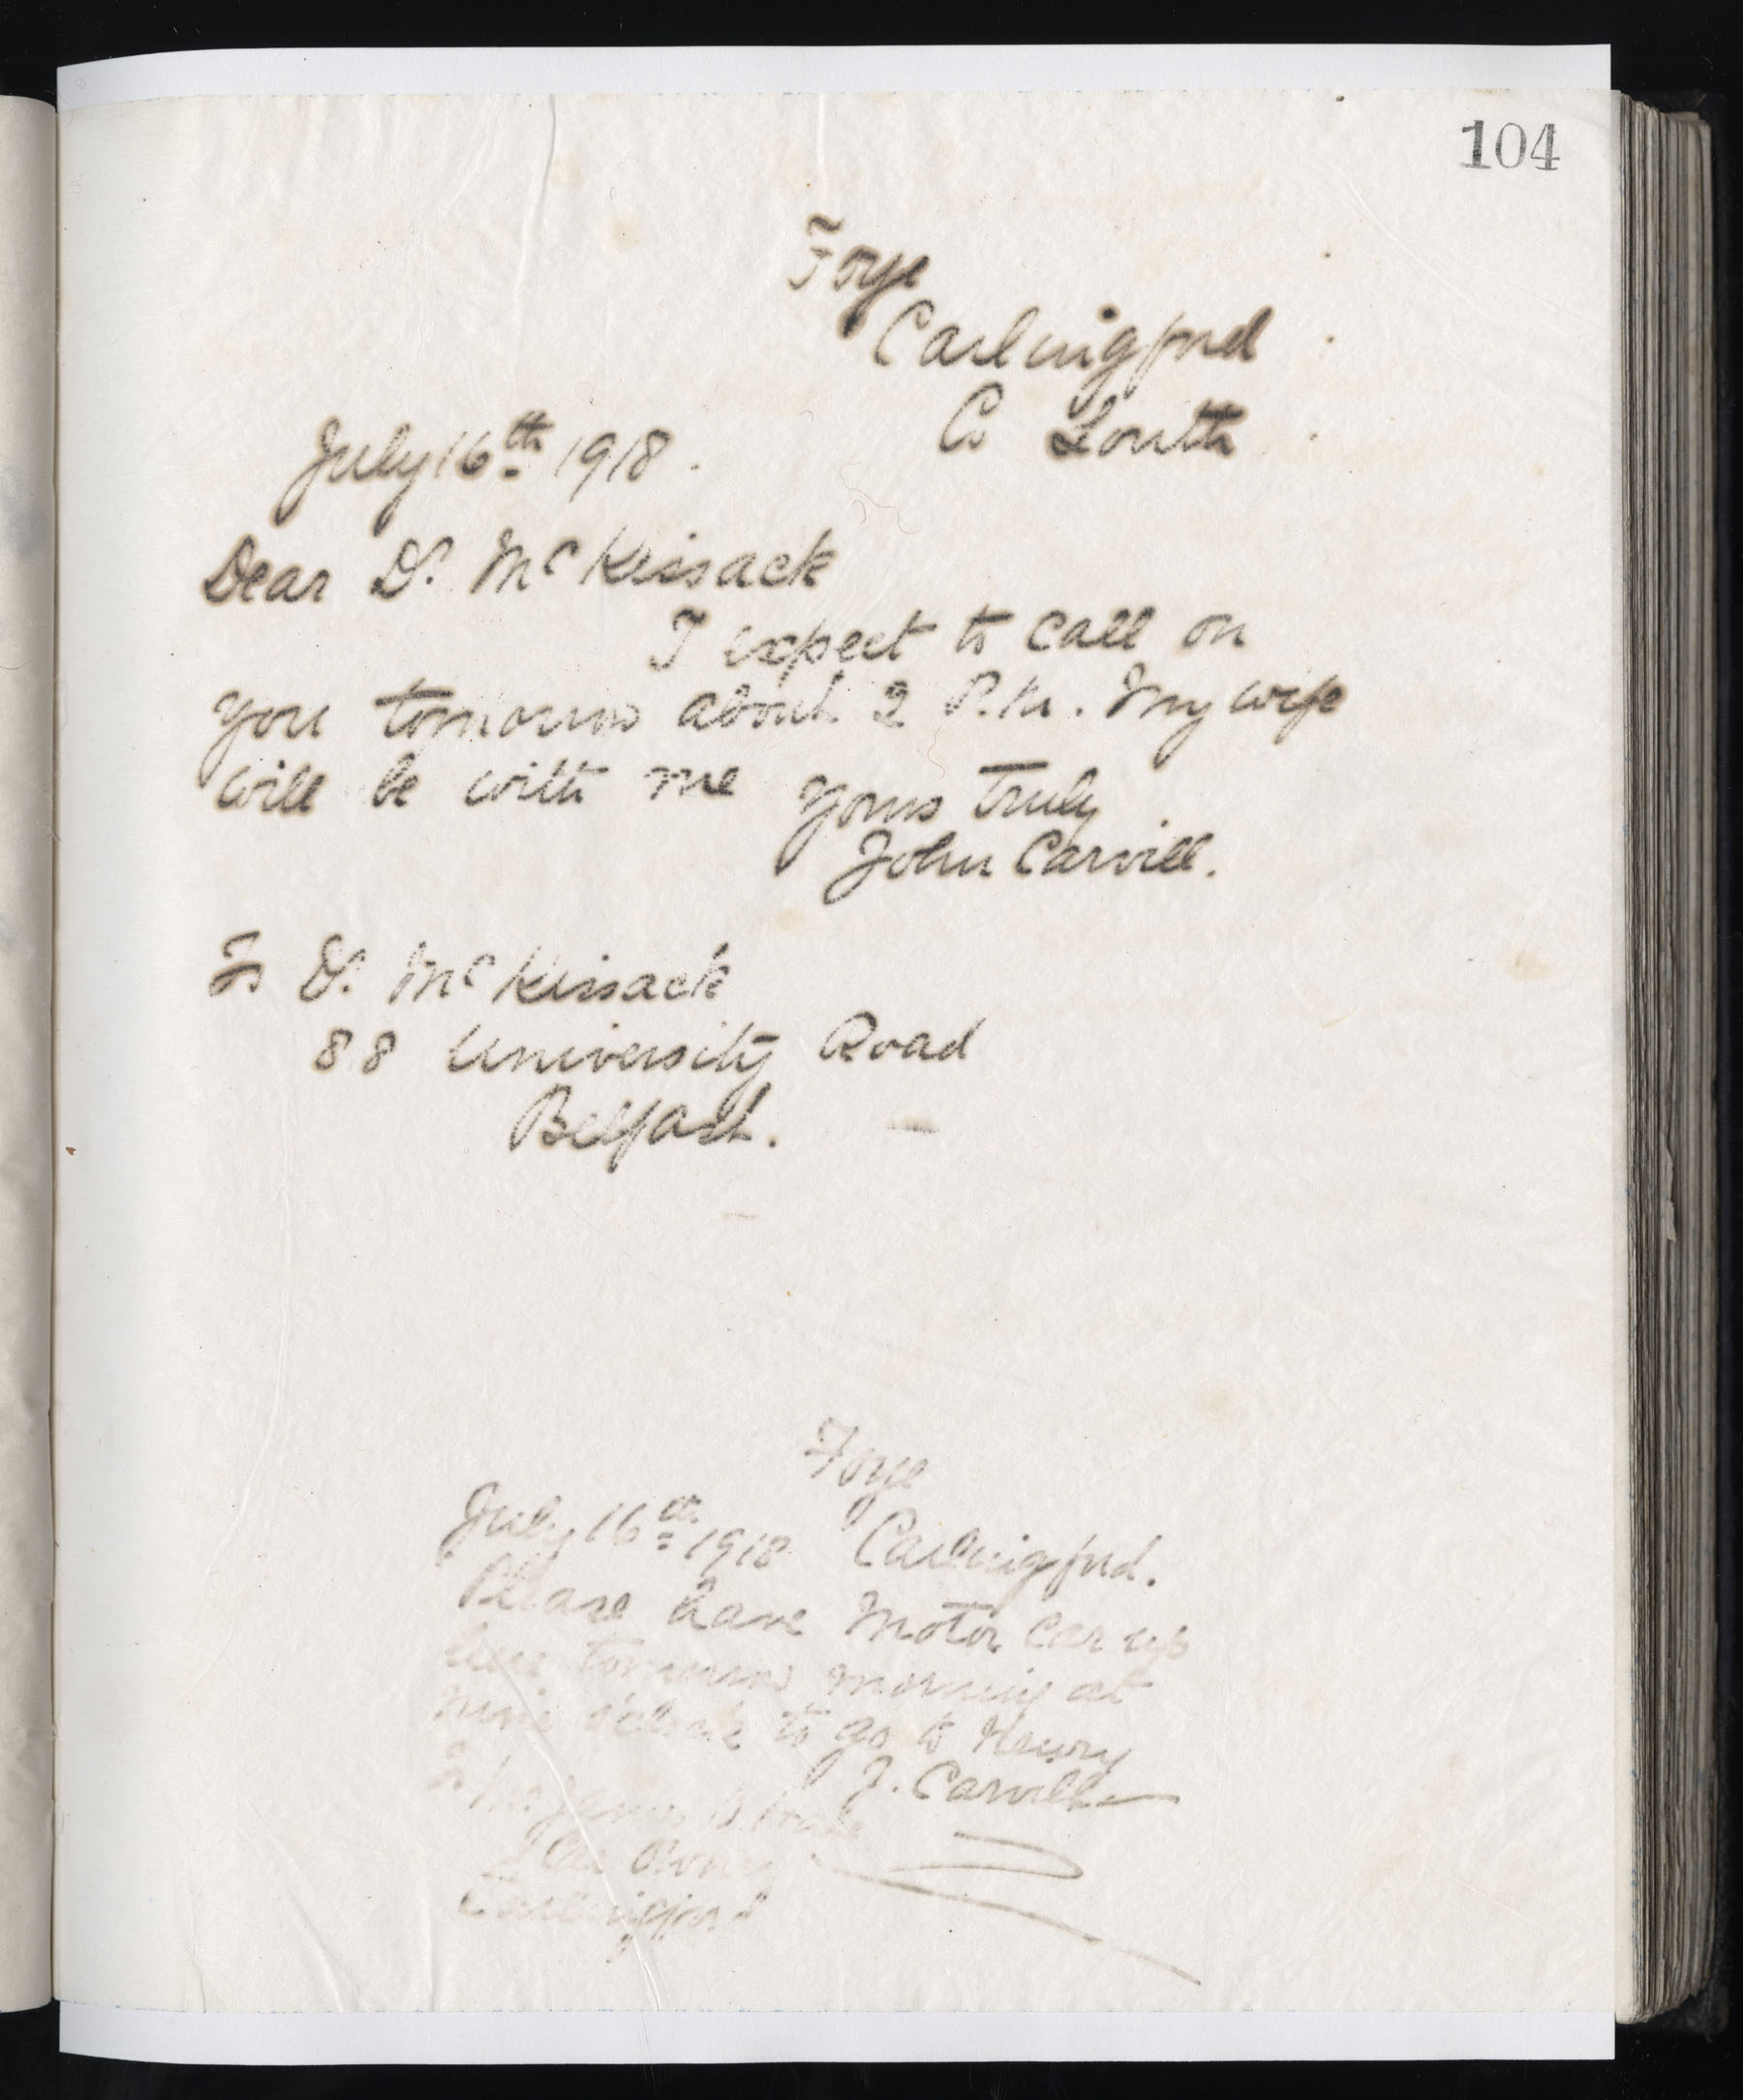 104
Foye
Carlingford
Co Louth
July 16th 1918.
Dear Dr. McKissack
I expect to call on
you tomorrow about 2 P.M. My wife
will be with me Yours truly
John Carvill.
To Dr. McKissack
88 University Road
Belfast.
Foye
July 16th 1918 Carlingford.
Please have Motor Car up
here tomorrow morning at
nine o'clock to go to Newry
J. Carvill
To Mr James
Carlingford